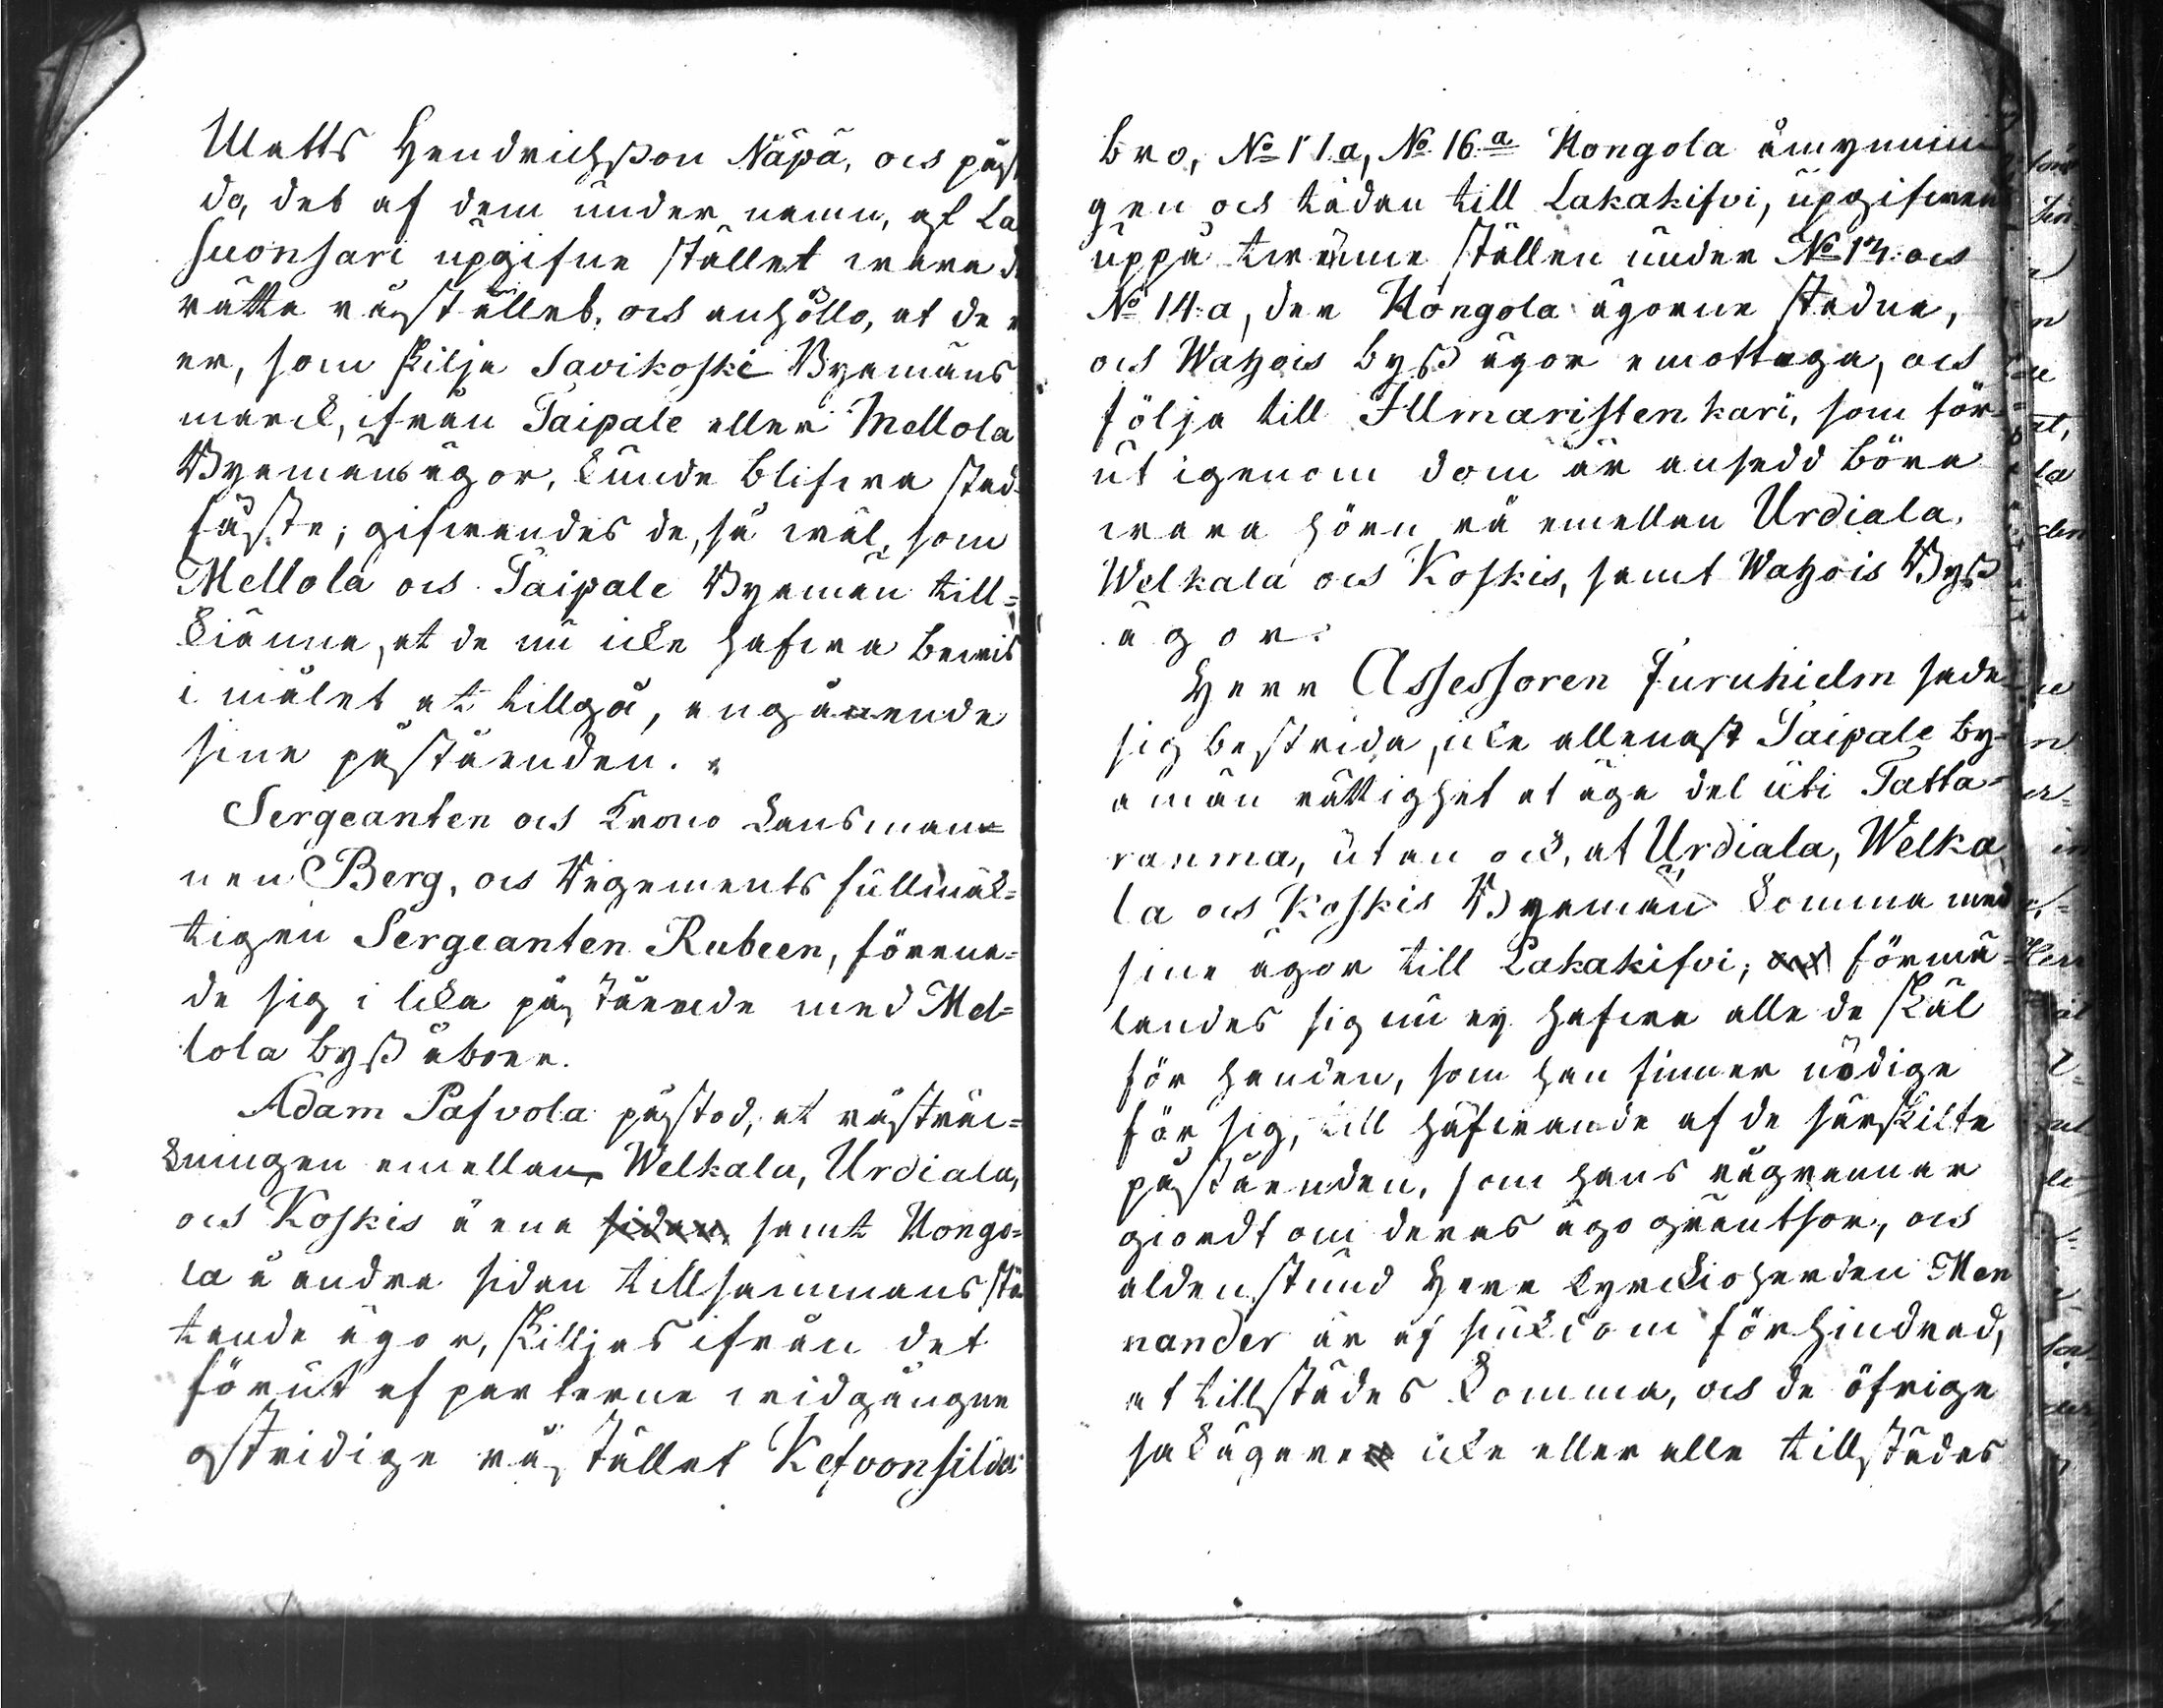 Matts Hendrichsson Näpä, och påst
do, det af dem under namn, af La
suonsari upgifne stället vara d
rätta råstället, och anhöllo, at de r
er, som skilja Savikoski Byamäns
marck, ifrån Taipale eller Mellola
Byamäns ägor, kunde blifwa stad-
fäste; gifwandes de, så wäl, som
Mellola och Taipale Byamän till=
kiänna, at de nu icke hafwa bewis
i målet at tillgå, angående
sine påståenden.
Sergeanten och Krono Länsman=
nen Berg, och Regements fullmäk=
tigen Sergeanten Rubeen, förena=
de sig i lika påstående med Mel=
lola byss åboer.
Adam Pafvola påstod, at råsträc=
kningen emellan Welkala, Urdiala,
och Koskis å ena sidan, samt Nongo=
la å andra sidan tillsammans stö
tande ägor, skilljes ifrån det
förut af parterne widgångne
ostridige råstället Kefvonsilda
bro, No 11a, No 16.a Nongola åmynnin
gen och tädan till Lakakifvi, upgifwen
uppå twänne ställen under No 13. och
No 14.a, der Nongola ägorne stadna,
och Wahois byss ägor emottaga, och
följa till Illmaristenkari, som för-
ut igenom dom är ansedd böra
wara hörn rå emellan Urdiala,
Welkala och Koskis, samt Wahois Byss
ägor.
Herr Assessoren Furuhielm sade
sig bestrida, icke allenast Taipale by-
amän rättighet at äga del uti Tatta=
ranma, utan ock, at Urdiala, Welka
la och Koskis Byamän komma med
sine ägor till Lakakifvi; och förmä-
landes sig nu ey hafwa alle de skäl
för handen, som han finner nödige
för sig, till häfwande af de särskilte
påståenden, som hans rågrannar
giordt om deras ägogräntsor, och
aldenstund Herr Kyrckioherden Men
nander är af siukdom förhindrad,
at tillstädes komma, och de öfrige
sakägare icke eller alle tillstädes